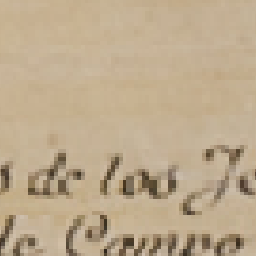 de los
de Campo